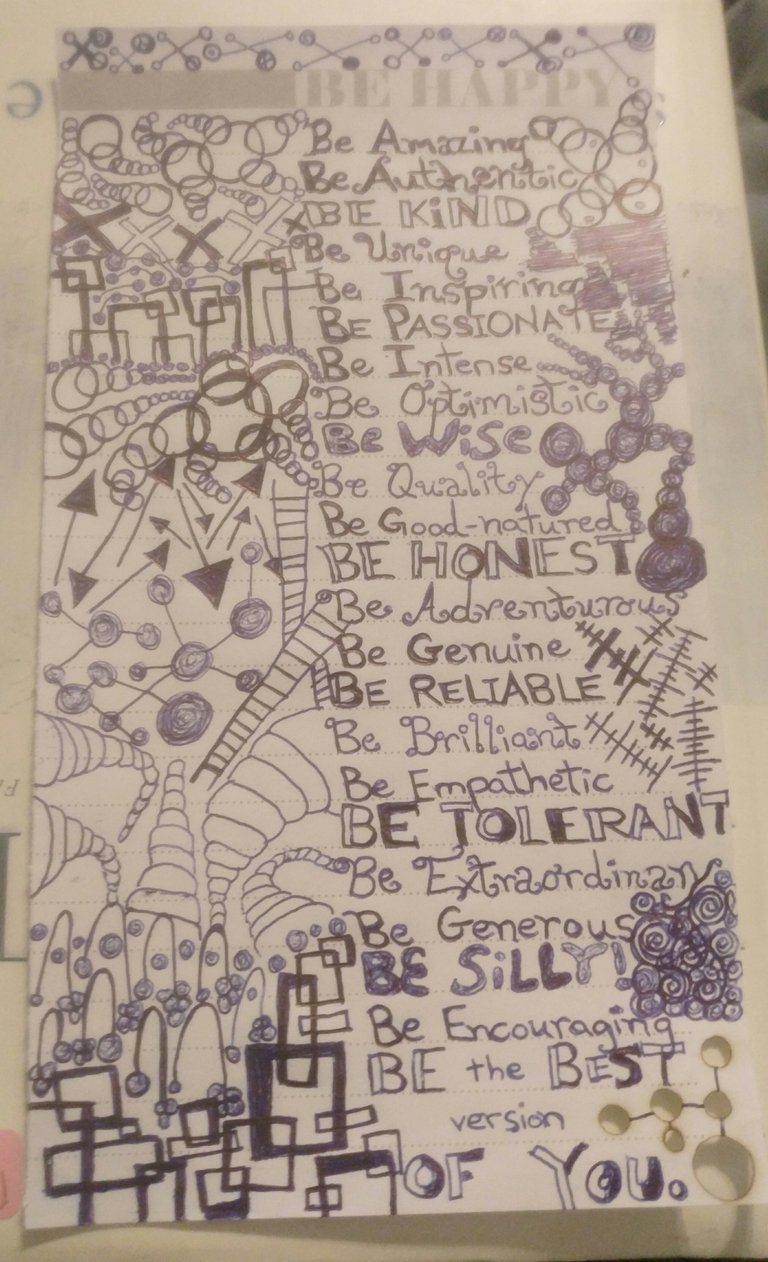 BE HAPPY
Be Amazing
Be Authentic
BE KiND
Be Unique
Be Inspiring
BE PASSIONATE
Be Intense
Be Optimistic
Be WiSe
Be Quality
Be Good-natured
BE HONEST
Be Adventurous
Be Genuine
BE RELIABLE
Be Brilliant
Be Empathetic
BE TOLERANT
Be Extraordinary
Be Generous
BE SiLLY!
Be Encouraging
BE the BEST
version
OF YOU.